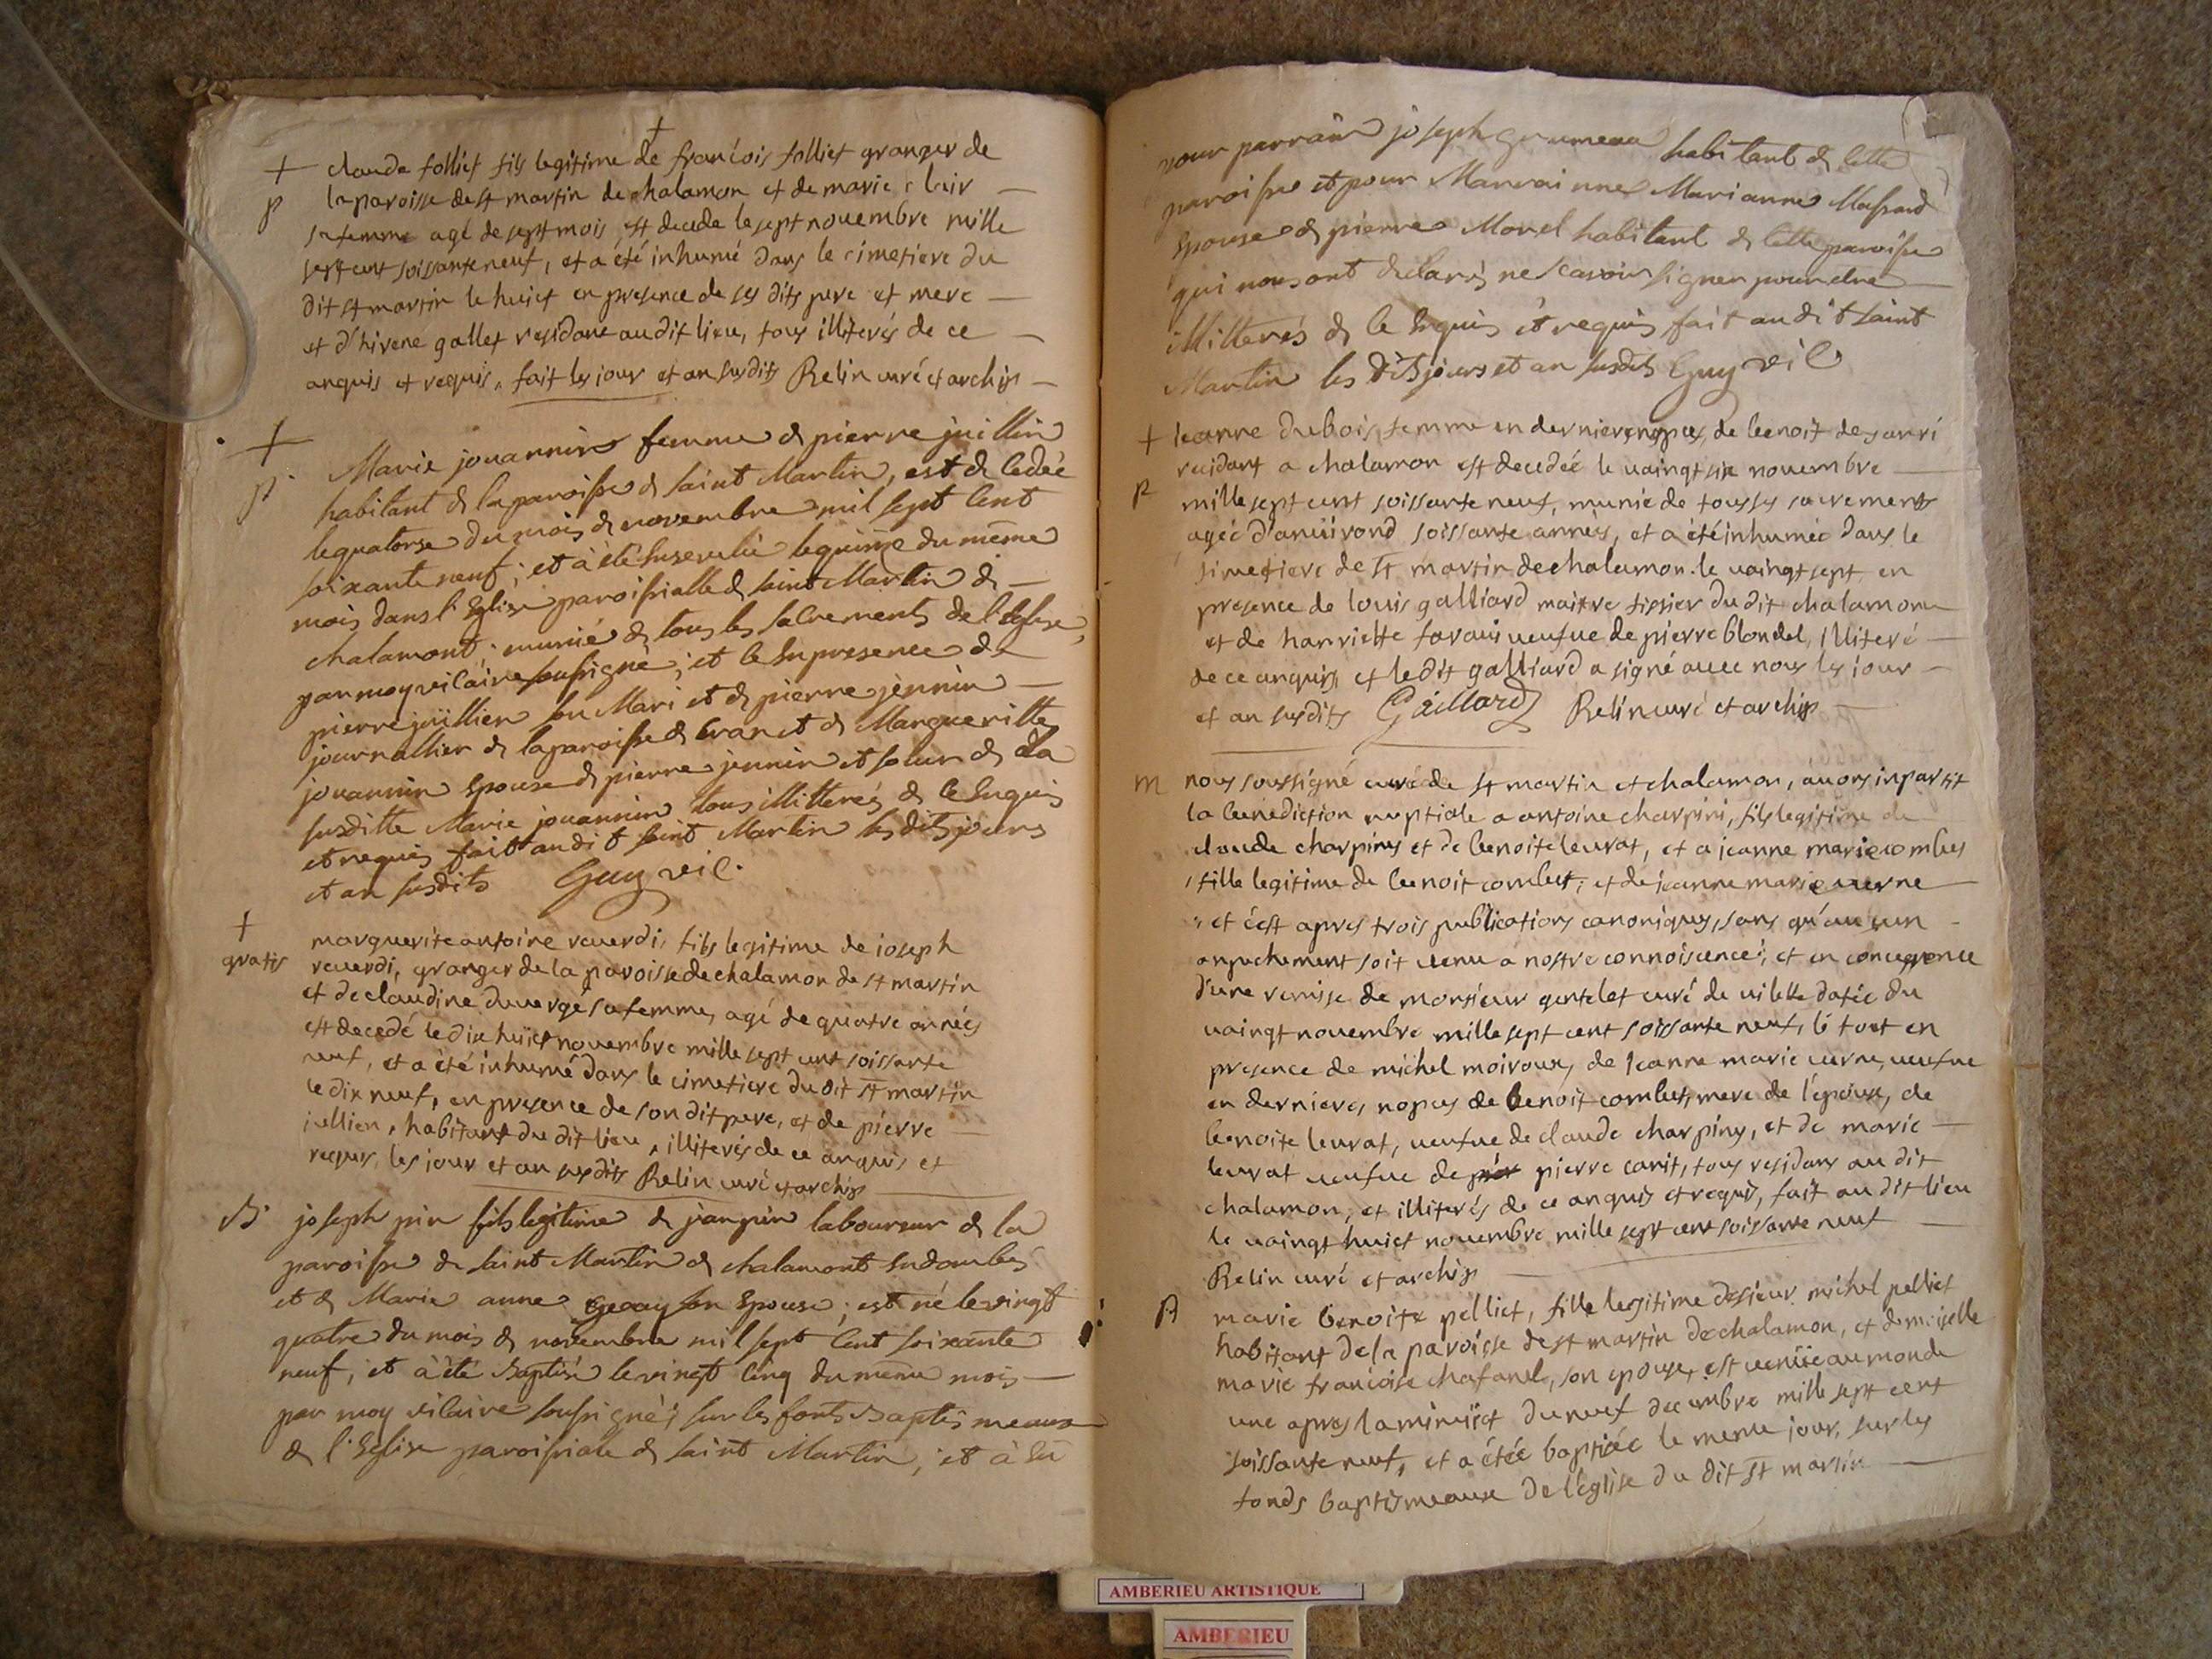 +
+ claude folliet fils legitime de francois folliet granger de
p la paroisse de st martin de chalamon et de marie clair
sa femme agé de sept mois, est decede le sept nouembre mille
sept cent soissante neuf, et a été inhumé dans le cimetiere du
dit st martin le huict en presence de ses dits pere et mere
et d'hirené gallet residant audit lieu, tous illiterés de ce
anquis et requis, fait les jour et an susdits Relin curé et archip
+ Marie jouannin femme de pierre juillin
p. habitant de la paroisse de saint Martin, est decedée
le quatorse du mois de novembre mil sept cent
soixante neuf; et à été ensevelie le quinze du même
mois dans l'Eglise paroissialle de saint Martin de
chalamont; munie de tous les sacrements de l'Eglise,
par moy vicaire soussigné; et ce en presence de
pierre juillien son Mari et de pierre jennin
journallier de la paroisse de Cran et de Margueritte
jouannin Epouse de pierre jennin et soeur de la
susditte Marie jouannin tous illitterés de ce Enquis
et requis fait audit saint Martin les dits jours
et an susdits Guy vic.
+ marguerite antoine reuerdi, fils legitime de ioseph
gratis reuerdi, granger de la paroisse de chalamon de st martin
et de claudine duuergé sa femme, agé de quatre années
est decedé le dix huict nouembre mille sept cent soissante
neuf, et a été inhumé dans le cimetiere du dit st martin
le dix neuf, en presence de son dit pere, et de pierre
jullien, habitant du dit lieu, illiterés de ce anquis et
requis, les jour et an susdits Relin curé et archip
B joseph pin fils legitime de jean pin laboureur de la
paroisse de saint Martin de chalamont En dombes
et de Marie anne son Epouse; est né le vingt
quatre du mois de novembre mil sept cent soixante
neuf, et à été Baptisé le vingt cinq du meme mois
par moy vicaire soussigné; sur les fonts Baptismeaux
de l'Eglise paroissiale de saint Martin; et à Eu
pour parrain joseph habitant de cette
paroisse et pour Marraine Marianne Massard
Epouse de pierre Morel habitant de cette paroisse
qui nous ont declarés ne scavoir signer pour etre
illitterés de ce Enquis et requis, fait audit saint
Martin les dits jours et an susdits Guy vic
+ Jeanne dubois, femme en dernieres nopces, de benoit de
residant a chalamon est decedée le uaingt six nouembre
p mille sept cent soissante neuf, munie de tous ses sacrements
agée d'anuirond soissante annees, et a été inhumée dans le
simetiere de st martin de chalamon le uaingt sept en
presence de louis galliard maitre tissier du dit chalamon
et de harriette ueufue de pierre blondel, illiteré
de ce anquis, et le dit galliard a signé auec nous les jour
et an susdits Gaillard Relin curé et archip
m nous soussigné curé de st martin et chalamon, auons inpartit
la benediction nuptiale a antoine charpini, fils legitime de
claude charpiny et de benoite leurat, et a jeanne marie combet
fille legitime de benoit combet, et de jeanne marie uerne
et c'est apres trois publications canoniques, sans qu'aucun
anpechement soit uenu a nostre connoiscence; et en
d'une remise de monsieur gentelet curé de uilette datée du
uaingt nouembre mille sept cent soissante neuf, le tout en
presence de michel moiroux, de Jeanne marie uerne, ueufue
en dernieres nopces de benoit combet, mere de l'epouse, de
benoite leurat, ueufue de claude charpiny, et de marie
leurat ueufue de pierre carit, tous residans au dit
chalamon, et illiterés de ce anquis et requis, fait au dit lieu
le uaingt huict nouembre mille sept cent soissante neuf
Relin curé et archip
B marie benoite pelliet, fille legitime de sieur michel pelliet
habitant de la paroisse de st martin de chalamon, et demoiselle
marie francoise chafanel, son epouse, est uenüe au monde
une apres la minüict du neuf decembre mille sept cent
soissante neuf, et a étée baptisée le meme jour, sur les
fonds baptismeaux de l'eglise du dit st martin
AMBERIEU ARTISTIQUE
AMBERIEU